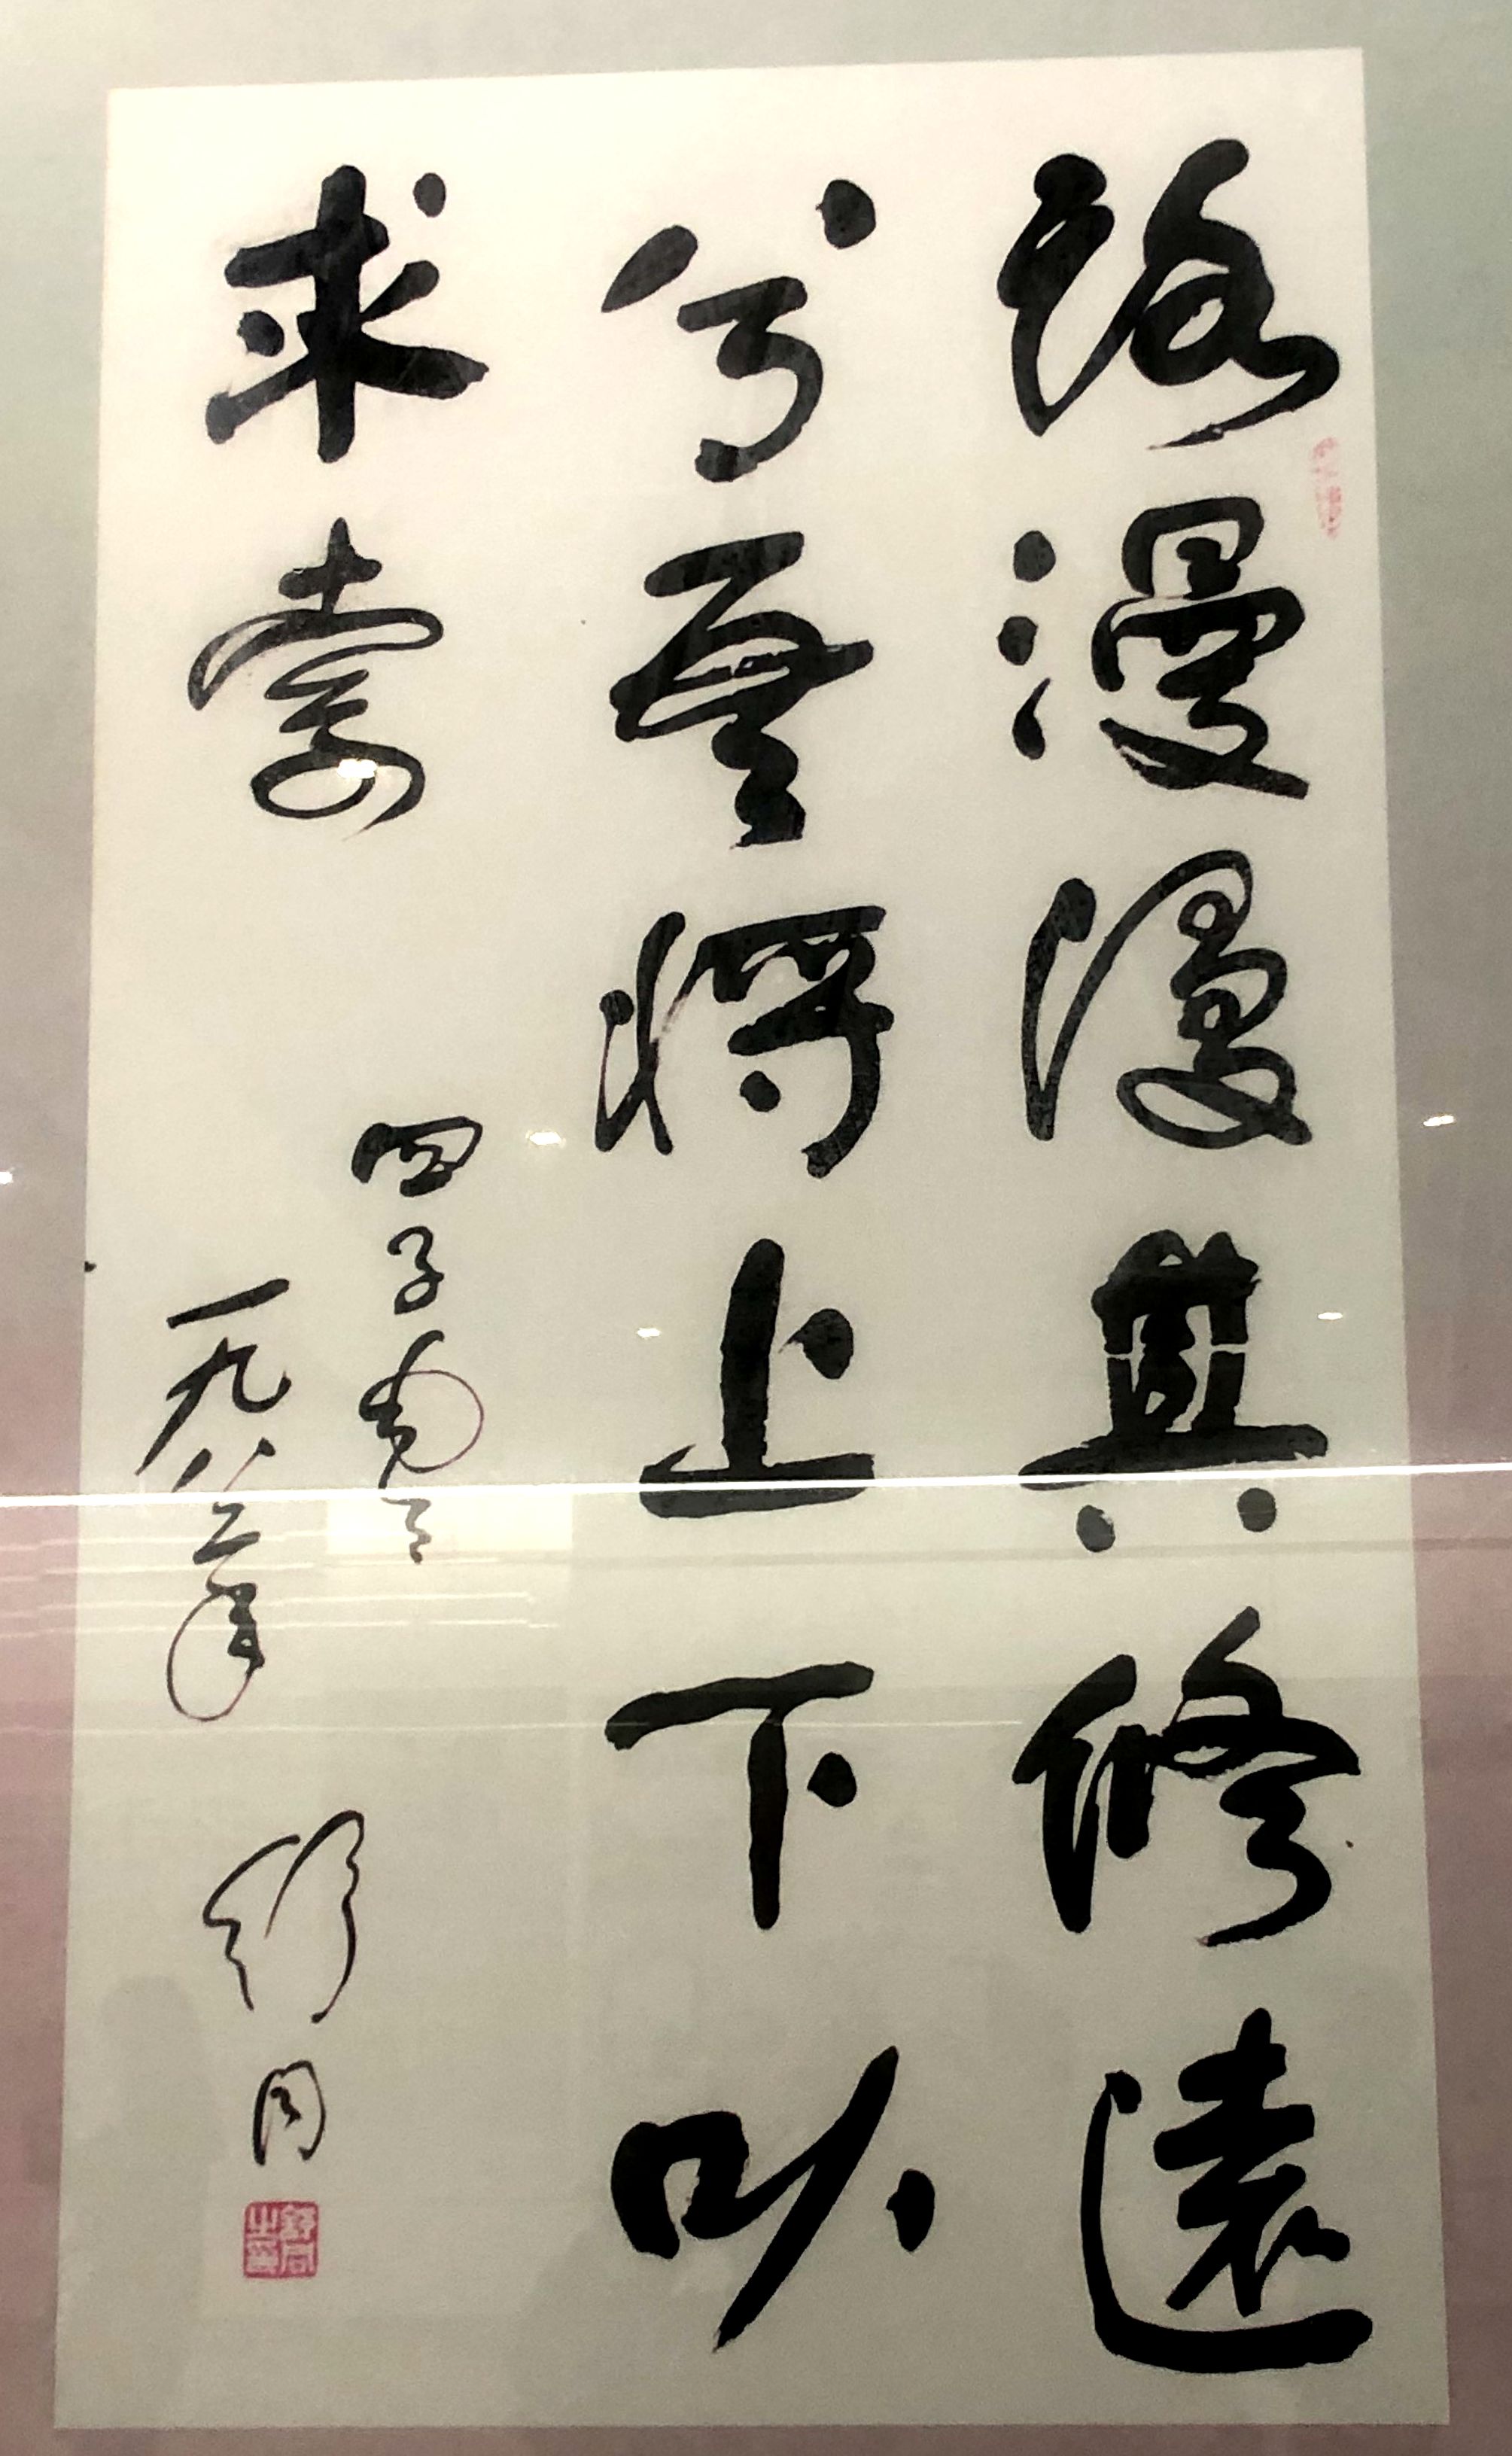 路漫漫其修遠
兮吾將上下以
求索
四子
一九八二年
舒同
舒同之